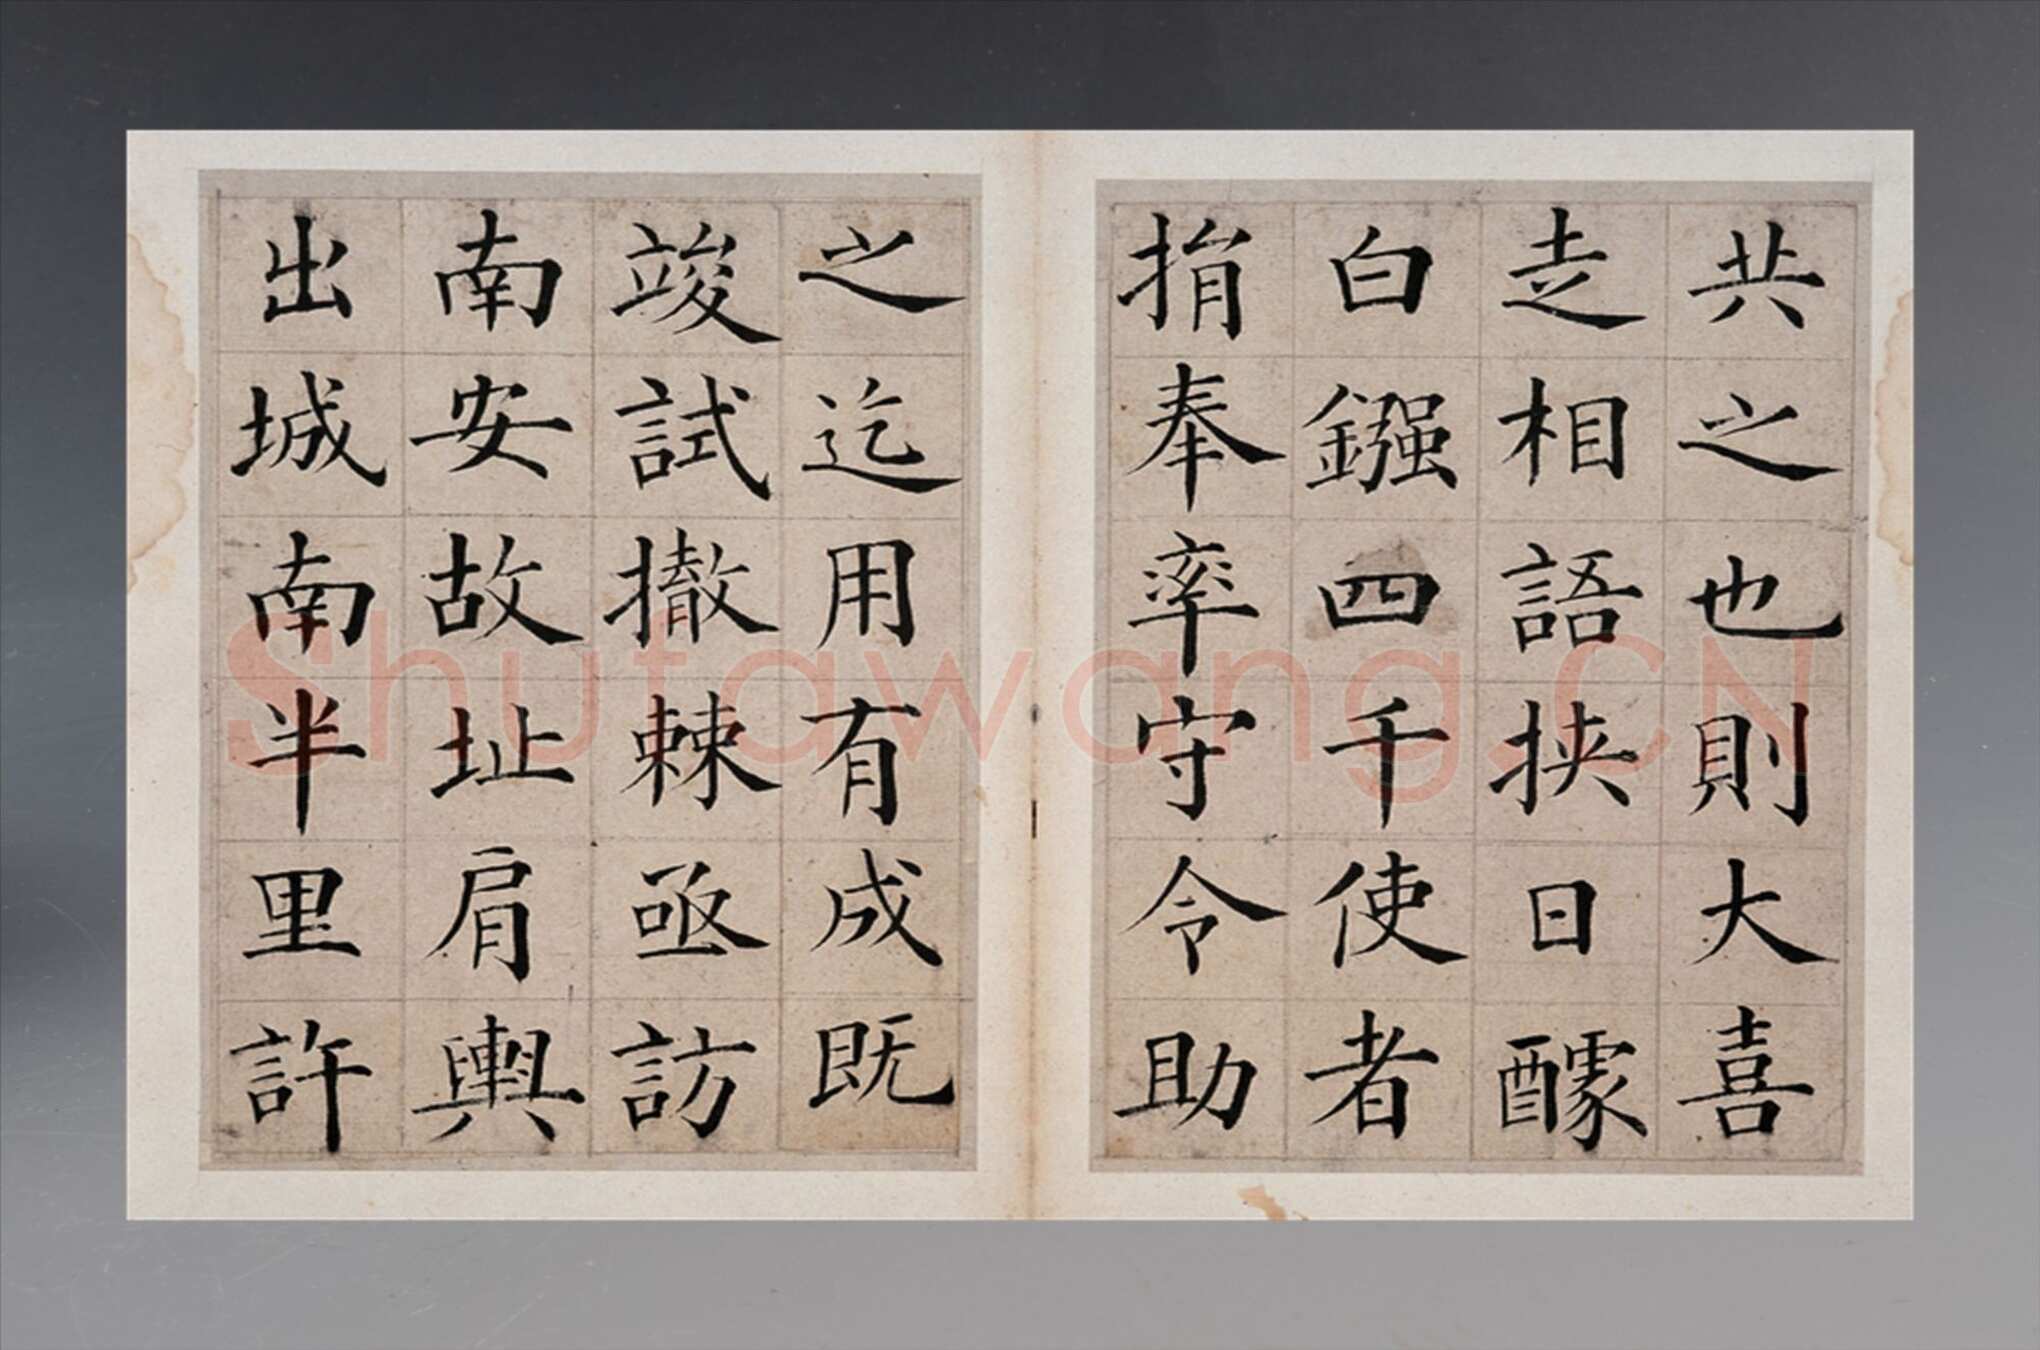 共之也則大喜
走相語挾日醵
白鏹四千使者
捐奉率守令助
之迄用有成既
竣試撤棘亟訪
南安故址肩輿
出城南半里許
Shufawang.CN